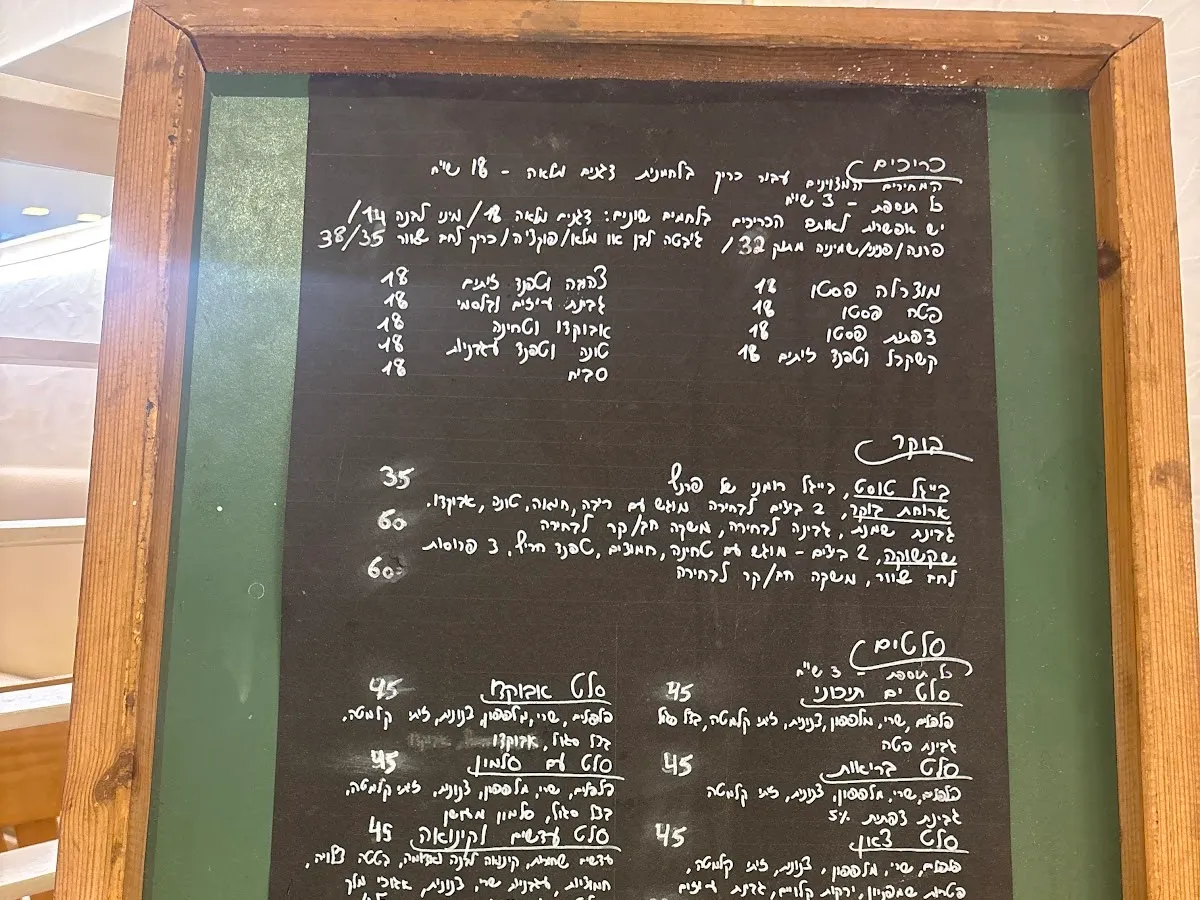 כריכים
המחירים המצוינים עבור כריך בלחמנית דגנים מלאה - 18 ש״ח
כל תוספת - 3 ש״ח
יש אפשרות לאותם הכריכים בלחמים שונים: דגנים מלאה 18/ מיני לבנה 14/
פרנה/פניני/שמיניה מתוק 32/ ג׳בטה לבן או מלא/פוקצ׳ה/כריך לחם שאור 38/35
מוצרלה פסטו 18
פטה פסטו 18
צפתית פסטו 18
קשקבל וטפנד זיתים 18
צהובה וטפנד זיתים 18
גבינת עיזים ובלסמי 18
אבוקדו וטחינה 18
טונה וטפנד עגבניות 18
סביח 18
בוקר
בייגל טוסט, בייגל רומני של פרנץ 35
ארוחת בוקר, 2 ביצים לבחירה מוגש עם ריבה, חמאה, טונה, אבוקדו,
גבינת שמנת, גבינה לבחירה, משקה חם/קר לבחירה 60
שקשוקה, 2 ביצים - מוגש עם טחינה, חמוצים, טפנד חריף, 3 פרוסות
לחם שאור, משקה חם/קר לבחירה 60
סלטים
כל תוספת - 3 ש״ח
סלט ים תיכוני 45
פלפלים, שרי, מלפפון, צנונית, זיתי קלמטה, בצל סגול
גבינת פטה
סלט בריאות 45
פלפלים, שרי, מלפפון, צנונית, זיתי קלמטה
גבינת צפתית 5%
סלט צאון 45
פלפלים, שרי, מלפפון, צנונית, זיתי קלמטה,
פטריות שמפניון, ירקות קלויים, גבינת עיזים
סלט אבוקדו 45
פלפלים, שרי, מלפפון, צנונית, זיתי קלמטה,
בצל סגול, אבוקדו
סלט עם סלמון 45
פלפלים, שרי, מלפפון, צנונית, זיתי קלמטה,
בצל סגול, סלמון מעושן
סלט עדשים לקינואה 45
עדשים שחורות, קינואה לבנה ואדומה, בטטה צלויה,
חמוציות, עגבניות שרי, צנונית, אגוזי מלך